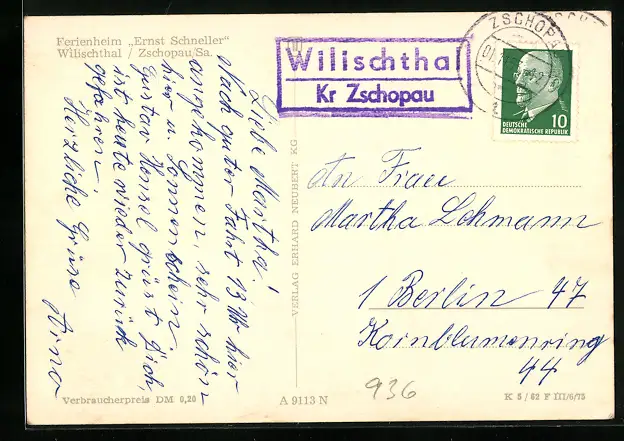 Ferienheim „Ernst Schneller"
Wilischthal / Zschopau/Sa.
Liebe Martha!
Nach guter Fahrt 13 Uhr hier
angekommen, sehr schön
hier u. Sonnenschein.
Gustav Hensel grüst Dich,
ist heute wieder zurück
gefahren.
Herzliche Grüse
Arno
Verbraucherpreis DM 0,20
A 9113 N
VERLAG ERHARD NEUBERT KG
Wilischthal
Kr Zschopau
ZSCHOPAU
DEUTSCHE
DEMOKRATISCHE REPUBLIK
10
An Frau
Martha Lohmann
1 Berlin 47
Kornblumenring
44
936
K 5 / 62 F III/6/75